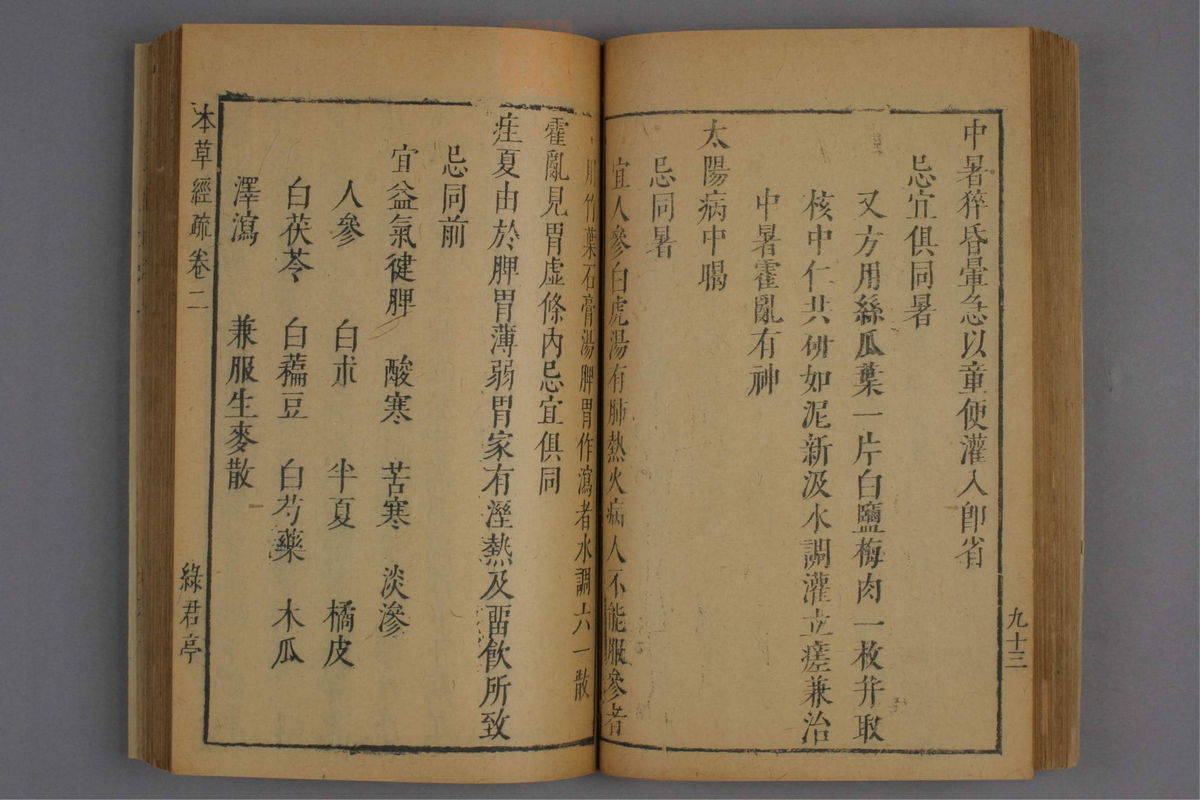 九十三
中暑猝昏暈急以童便灌入卽省
忌宜俱同暑
又方用絲瓜葉一片白鹽梅肉一枚幷取
核中仁共硏如泥新汲水調灌立瘥兼治
中暑霍亂有神
太陽病中暍
忌同暑
宜人參白虎湯有肺熱火病人不能服參者
用竹葉石膏湯脾胃作瀉者水調六一散
霍亂見胃虛條內忌宜俱同
疰夏由於脾胃薄弱胃家有溼熱及畱飲所致
忌同前
宜益氣健脾 酸寒 苦寒 淡滲
人參 白朮 半夏 橘皮
白茯苓 白藊豆 白芍藥 木瓜
澤瀉 兼服生麥散
本草經疏卷二
綠君亭